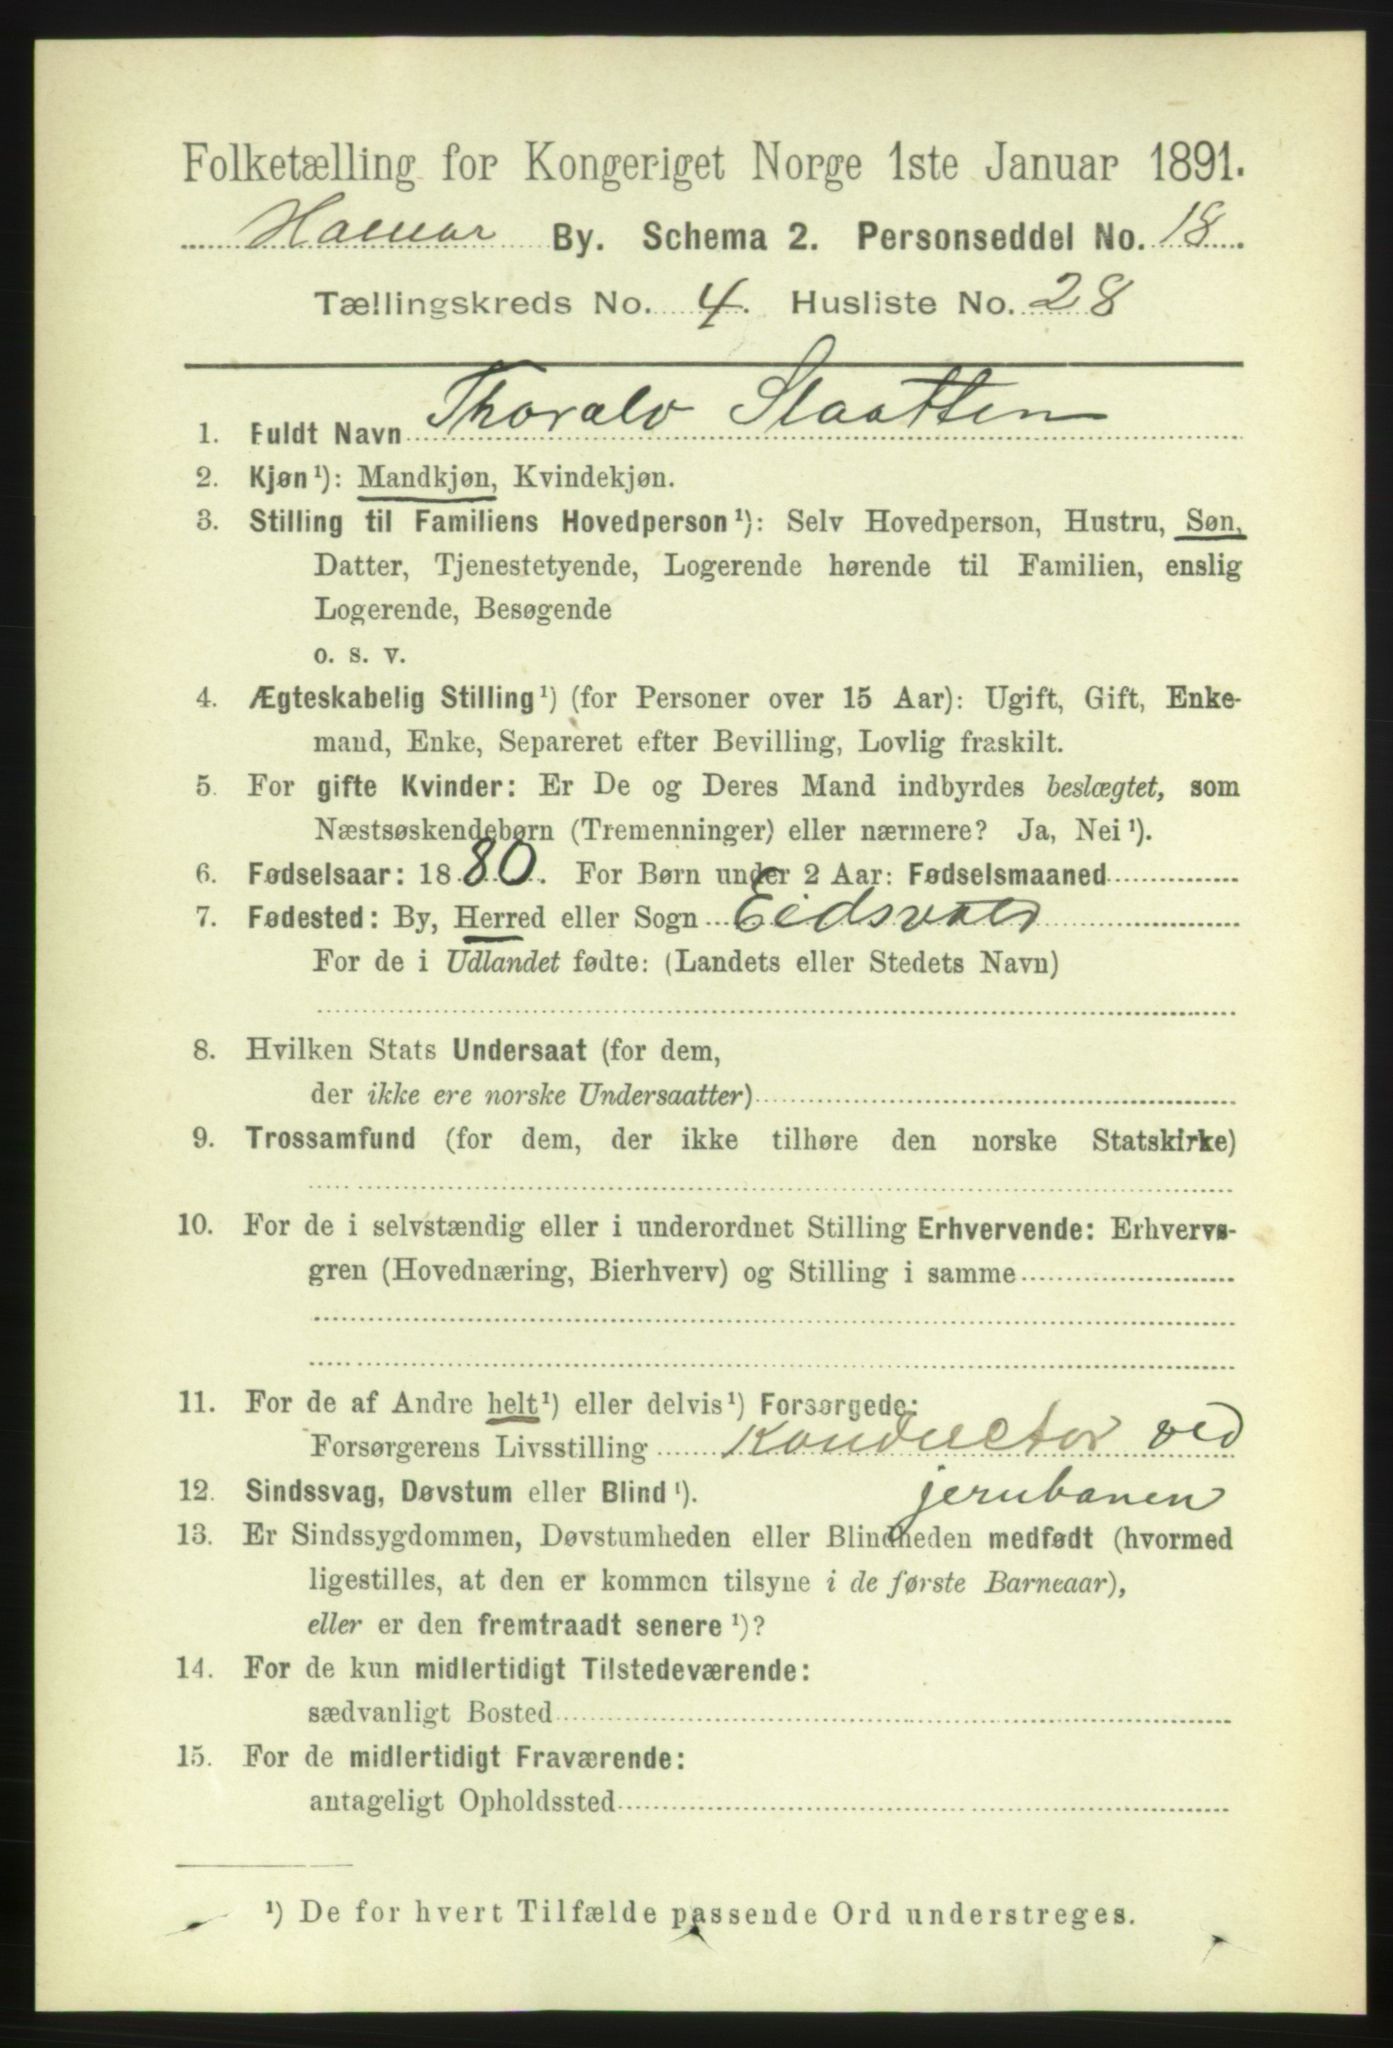 Folketælling for Kongeriget Norge 1ste Januar 1891.
Hamar By. Schema 2. Personseddel No. 18.
Tællingskreds No. 4. Husliste No. 28
1. Fuldt Navn Thoralv Slaatten
2. Kjøn¹): Mandkjøn, Kvindekjøn.
3. Stilling til Familiens Hovedperson¹): Selv Hovedperson, Hustru, Søn,
Datter, Tjenestetyende, Logerende hørende til Familien, enslig
Logerende, Besøgende
o. s. v.
4. Ægteskabelig Stilling¹) (for Personer over 15 Aar): Ugift, Gift, Enke-
mand, Enke, Separeret efter Bevilling, Lovlig fraskilt.
5. For gifte Kvinder: Er De og Deres Mand indbyrdes beslægtet, som
Næstsøskendebørn (Tremenninger) eller nærmere? Ja, Nei¹).
6. Fødselsaar: 1880. For Børn under 2 Aar: Fødselsmaaned
7. Fødested: By, Herred eller Sogn Eidsvold
For de i Udlandet fødte: (Landets eller Stedets Navn)
8. Hvilken Stats Undersaat (for dem,
der ikke ere norske Undersaatter)
9. Trossamfund (for dem, der ikke tilhøre den norske Statskirke)
10. For de i selvstændig eller i underordnet Stilling Erhvervende: Erhvervs-
gren (Hovednæring, Bierhverv) og Stilling i samme
11. For de af Andre helt¹) eller delvis¹) Forsørgede:
Forsørgerens Livsstilling Konductor ved
jernbanen
12. Sindssvag, Døvstum eller Blind¹).
13. Er Sindssygdommen, Døvstumheden eller Blindheden medfødt (hvormed
ligestilles, at den er kommen tilsyne i de første Barneaar),
eller er den fremtraadt senere¹)?
14. For de kun midlertidigt Tilstedeværende:
sædvanligt Bosted
15. For de midlertidigt Fraværende:
antageligt Opholdssted
¹) De for hvert Tilfælde passende Ord understreges.